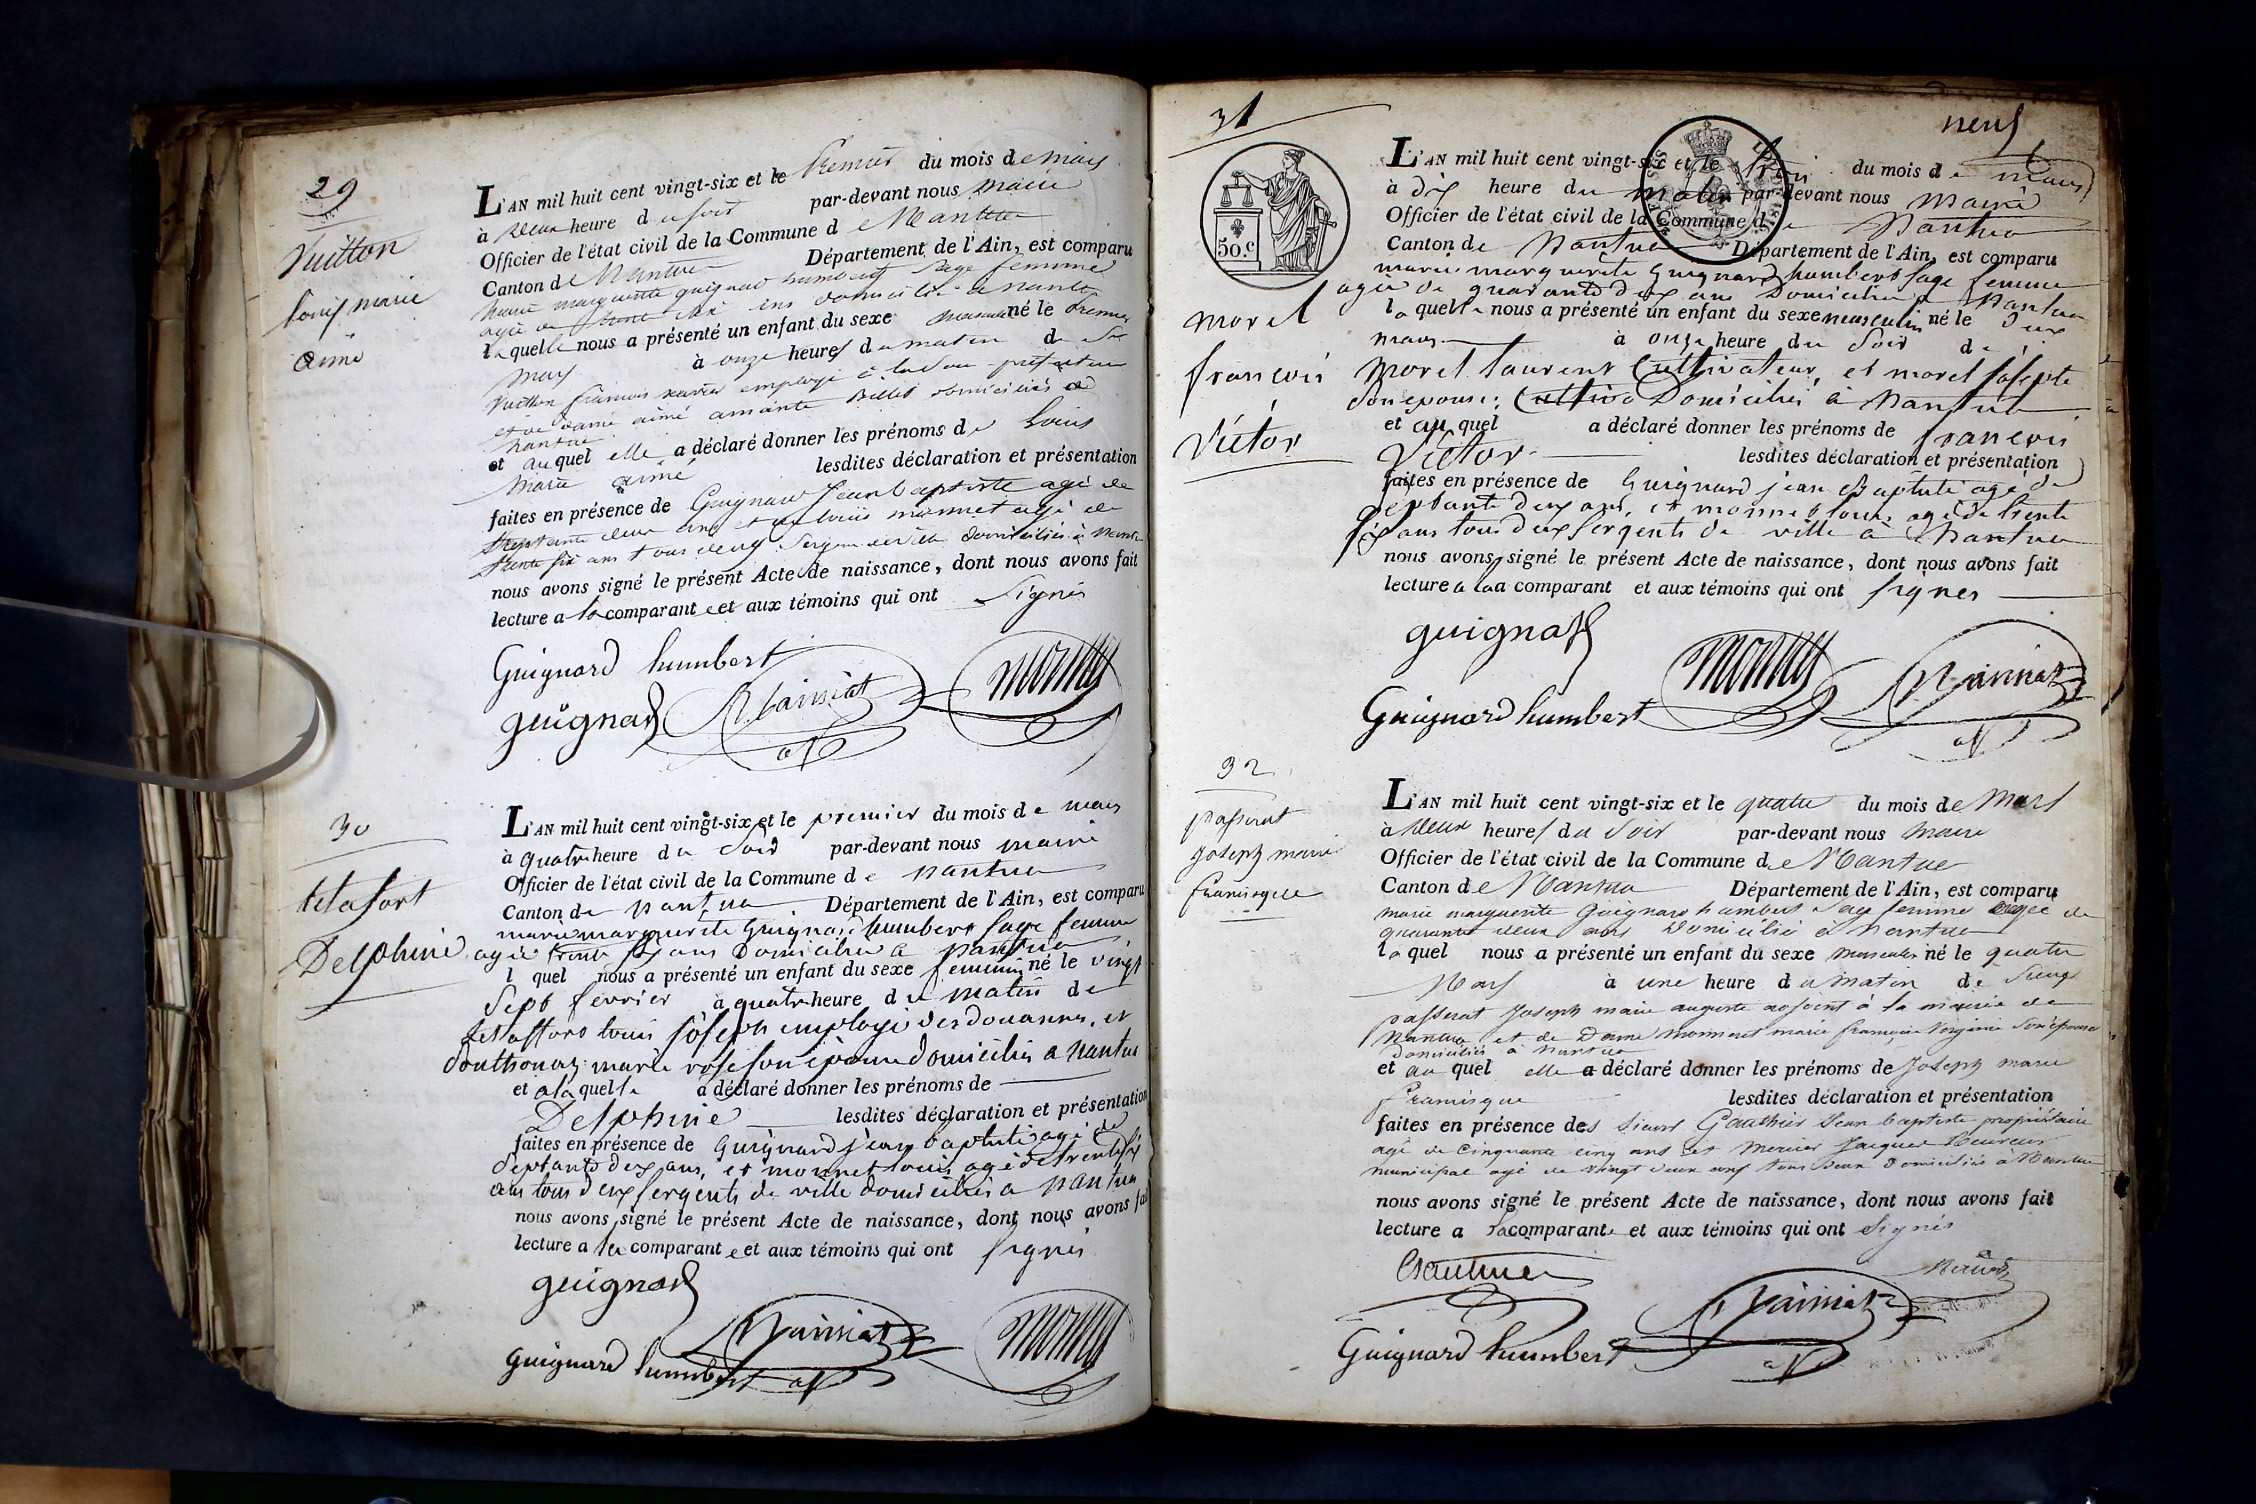 29
Vuitton
louis marie
aimé
L'AN mil huit cent vingt-six et le Premier du mois de mars
à deux heure du soir par-devant nous maire
Officier de l'état civil de la Commune de Nantua
Canton de Nantua Département de l'Ain, est comparu
marie marguerite guignard humbert sage femme
agée de ans domiciliée a nantua
laquelle nous a présenté un enfant du sexe masculin né le premier
mars à onze heures du matin de Sr
Vuitton francois xavier employé à la Sou préfecture
et de dame aimé amante Billet domiciliés à
nantua
et auquel elle a déclaré donner les prénoms de Louis
marie aimé lesdites déclaration et présentation
faites en présence de Guignard Jean baptiste agé de
septante deux ans et de louis monnet agé de
trente six ans tous deux Sergens de ville domiciliés à Nantua
nous avons signé le présent Acte de naissance, dont nous avons fait
lecture a la comparante et aux témoins qui ont Signés
Guignard humbert
guignard
30
delafort
Delphine
L'AN mil huit cent vingt-six et le premier du mois de mars
à quatre heure du Soir par-devant nous maire
Officier de l'état civil de la Commune de nantua
Canton de nantua Département de l'Ain, est comparu
marie marguerite Guignard humbert sage femme
agée trente six ans Domiciliée a nantua
l quel nous a présenté un enfant du sexe feminin né le vingt
Sept fevrier à quatre heure du matin de
louis joseph employé des douannes, et
marie rose son épouse domiciliés a nantua
et a laquelle a déclaré donner les prénoms de
Delphine lesdites déclaration et présentation
faites en présence de Guignard jean baptiste agé de
septante deux ans, et monnet louis agé de trente six
ans tous deux sergents de ville domiciliés a nantua
nous avons signé le présent Acte de naissance, dont nous avons fait
lecture a la comparante et aux témoins qui ont signés
guignard
guignard humbert
31
neuf
50.c
morel
françois
Victor
L'AN mil huit cent vingt-six et le trois du mois de mars
à dix heure du matin par-devant nous maire
Officier de l'état civil de la Commune de Nantua
Canton de Nantua Département de l'Ain, est comparu
marie marguerite guignard humbert sage femme
agée de quarante deux ans Domiciliée a Nantua
laquelle nous a présenté un enfant du sexe masculin né le deux
mars à onze heure du Soir de
Morel laurent Cultivateur, et morel Josepte
son epouse Domiciliés à Nantua
et auquel a déclaré donner les prénoms de françois
Victor lesdites déclaration et présentation
faites en présence de Guignard jean Baptiste agé de
septante deux ans, et monnet louis agé de trente
six ans tous deux sergents de ville a Nantua
nous avons signé le présent Acte de naissance, dont nous avons fait
lecture a laa comparant et aux témoins qui ont signés
guignard
Guignard humbert
32
passerat
Joseph marie
francisque
L'AN mil huit cent vingt-six et le quatre du mois de Mars
à deux heures du Soir par-devant nous maire
Officier de l'état civil de la Commune de Nantua
Canton de Nantua Département de l'Ain, est comparu
marie marguerite Guignard humbert Sage femme agée de
quarante deux ans Domiciliée à Nantua
laquel nous a présenté un enfant du sexe masculin né le quatre
Mars à une heure du matin de Sieur
passerat Joseph marie auguste adjoint à la mairie de
Nantua et de Dame monnet marie françoise Virginie Son épouse
Domiciliés à Nantua
et au quel elle a déclaré donner les prénoms de Joseph marie
Francisque lesdites déclaration et présentation
faites en présence des Sieurs Gauthier Jean baptiste propriétaire
agé de Cinquante cinq ans et Mercier Jacques Receveur
municipal agé de vingt deux ans tous deux Domiciliés à Nantua
nous avons signé le présent Acte de naissance, dont nous avons fait
lecture a la comparante et aux témoins qui ont Signés
Gauthier
Guignard humbert